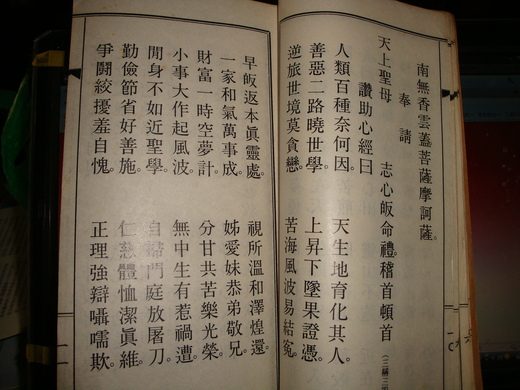 南無香雲蓋菩薩摩訶薩。
奉請
天上聖母 志心皈命禮。稽首頓首
讚助心經曰
人類百種奈何因。 天生地育化其人。
善惡二路曉世學。 上昇下墜果證憑。
逆旅世境莫貪戀。 苦海風波易結冤。
早皈返本眞靈處。 視所溫和澤煌還。
一家和氣萬事成。 姊愛妹恭弟敬兄。
財富一時空夢計。 分甘共苦樂光榮。
小事大作起風波。 無中生有惹禍遭。
閒身不如近聖學。 自門庭放屠刀。
勤儉節省好善施。 仁慈體恤潔眞維。
爭鬪絞擾羞自愧。 正理強辯囁嚅欺。